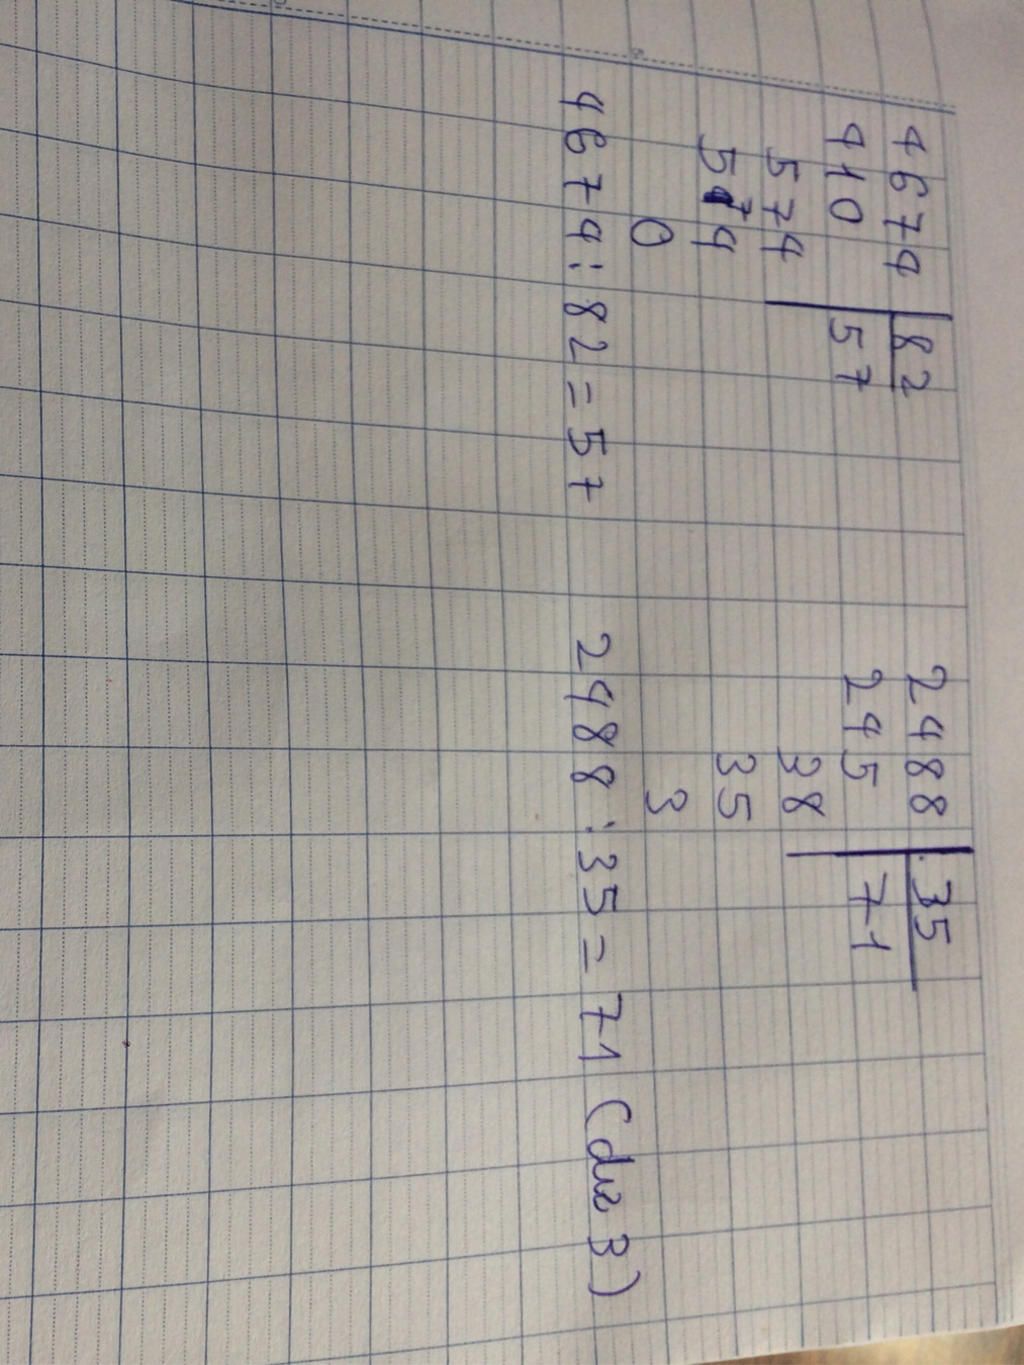 4674 82
410 57
574
574
0
4674 : 82 = 57
2488 35
245 71
38
35
3
2488 : 35 = 71 (dư 3)